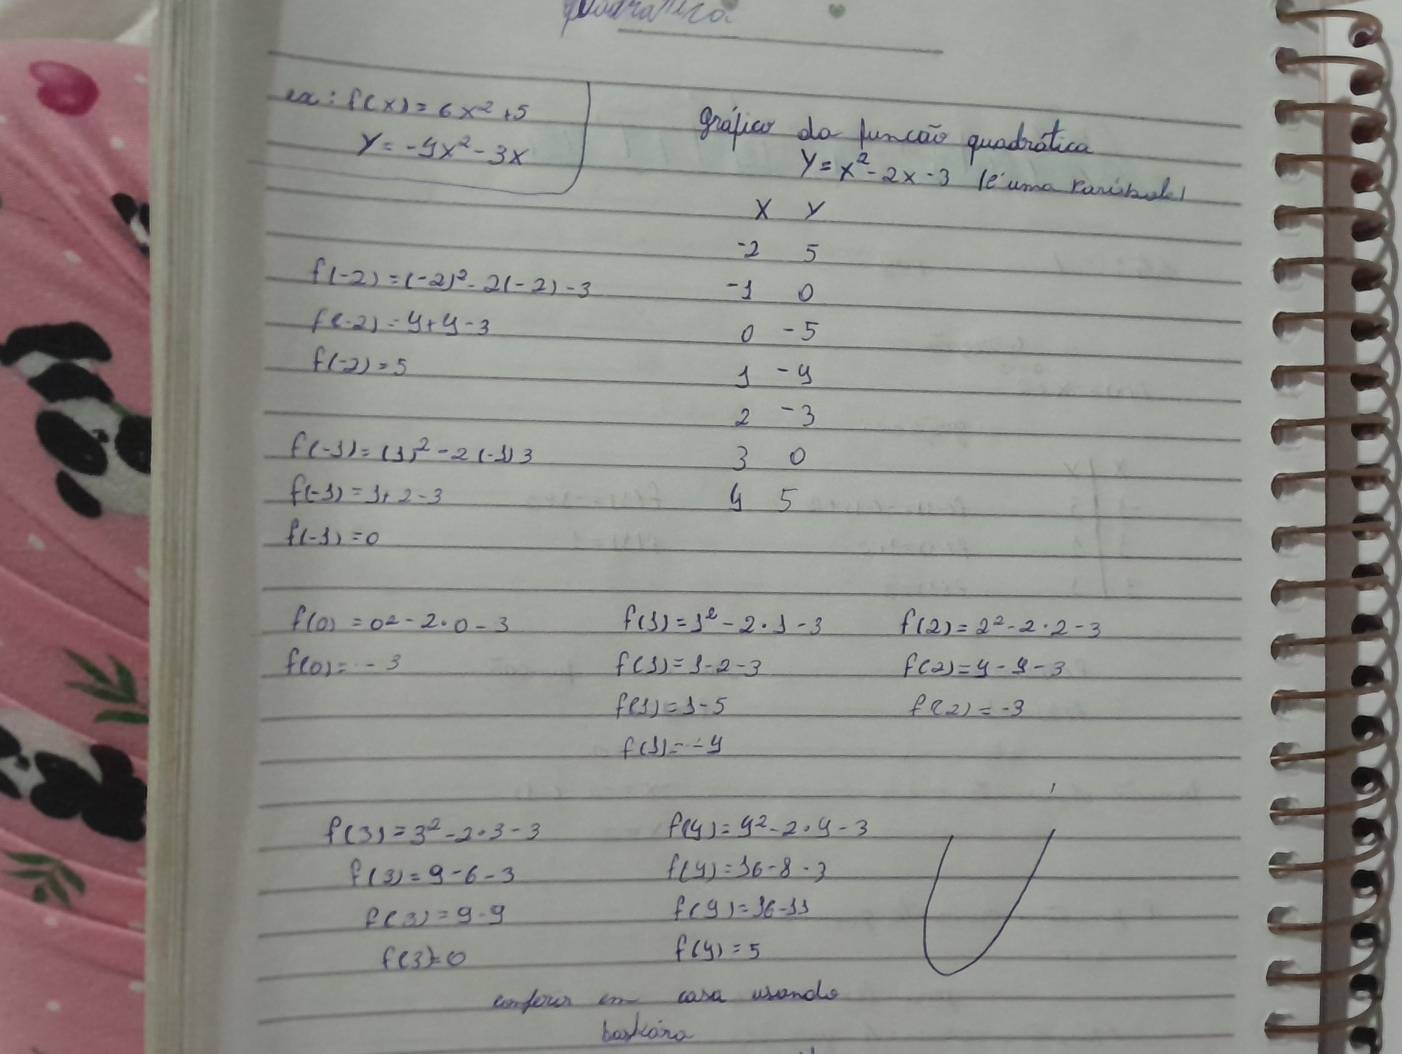 quadratica
ex: f(x) = 6x² + 5
y = -4x² - 3x
gráfico da função quadrática
y = x² - 2x - 3 (é uma parábola)
x y
-2 5
-1 0
0 -5
1 -4
2 -3
3 0
4 5
f(-2) = (-2)² - 2(-2) - 3
f(-2) = 4 + 4 - 3
f(-2) = 5
f(-1) = (1)² - 2(-1) 3
f(-1) = 1 + 2 - 3
f(-1) = 0
f(0) = 0² - 2 · 0 - 3
f(0) = - 3
f(1) = 1² - 2 · 1 - 3
f(1) = 1 - 2 - 3
f(1) = 1 - 5
f(1) = - 4
f(2) = 2² - 2 · 2 - 3
f(2) = 4 - 4 - 3
f(2) = -3
f(3) = 3² - 2 · 3 - 3
f(3) = 9 - 6 - 3
f(3) = 9 - 9
f(3) = 0
f(4) = 4² - 2 · 4 - 3
f(4) = 16 - 8 - 3
f(4) = 16 - 11
f(4) = 5
conferir em casa usando
baskára